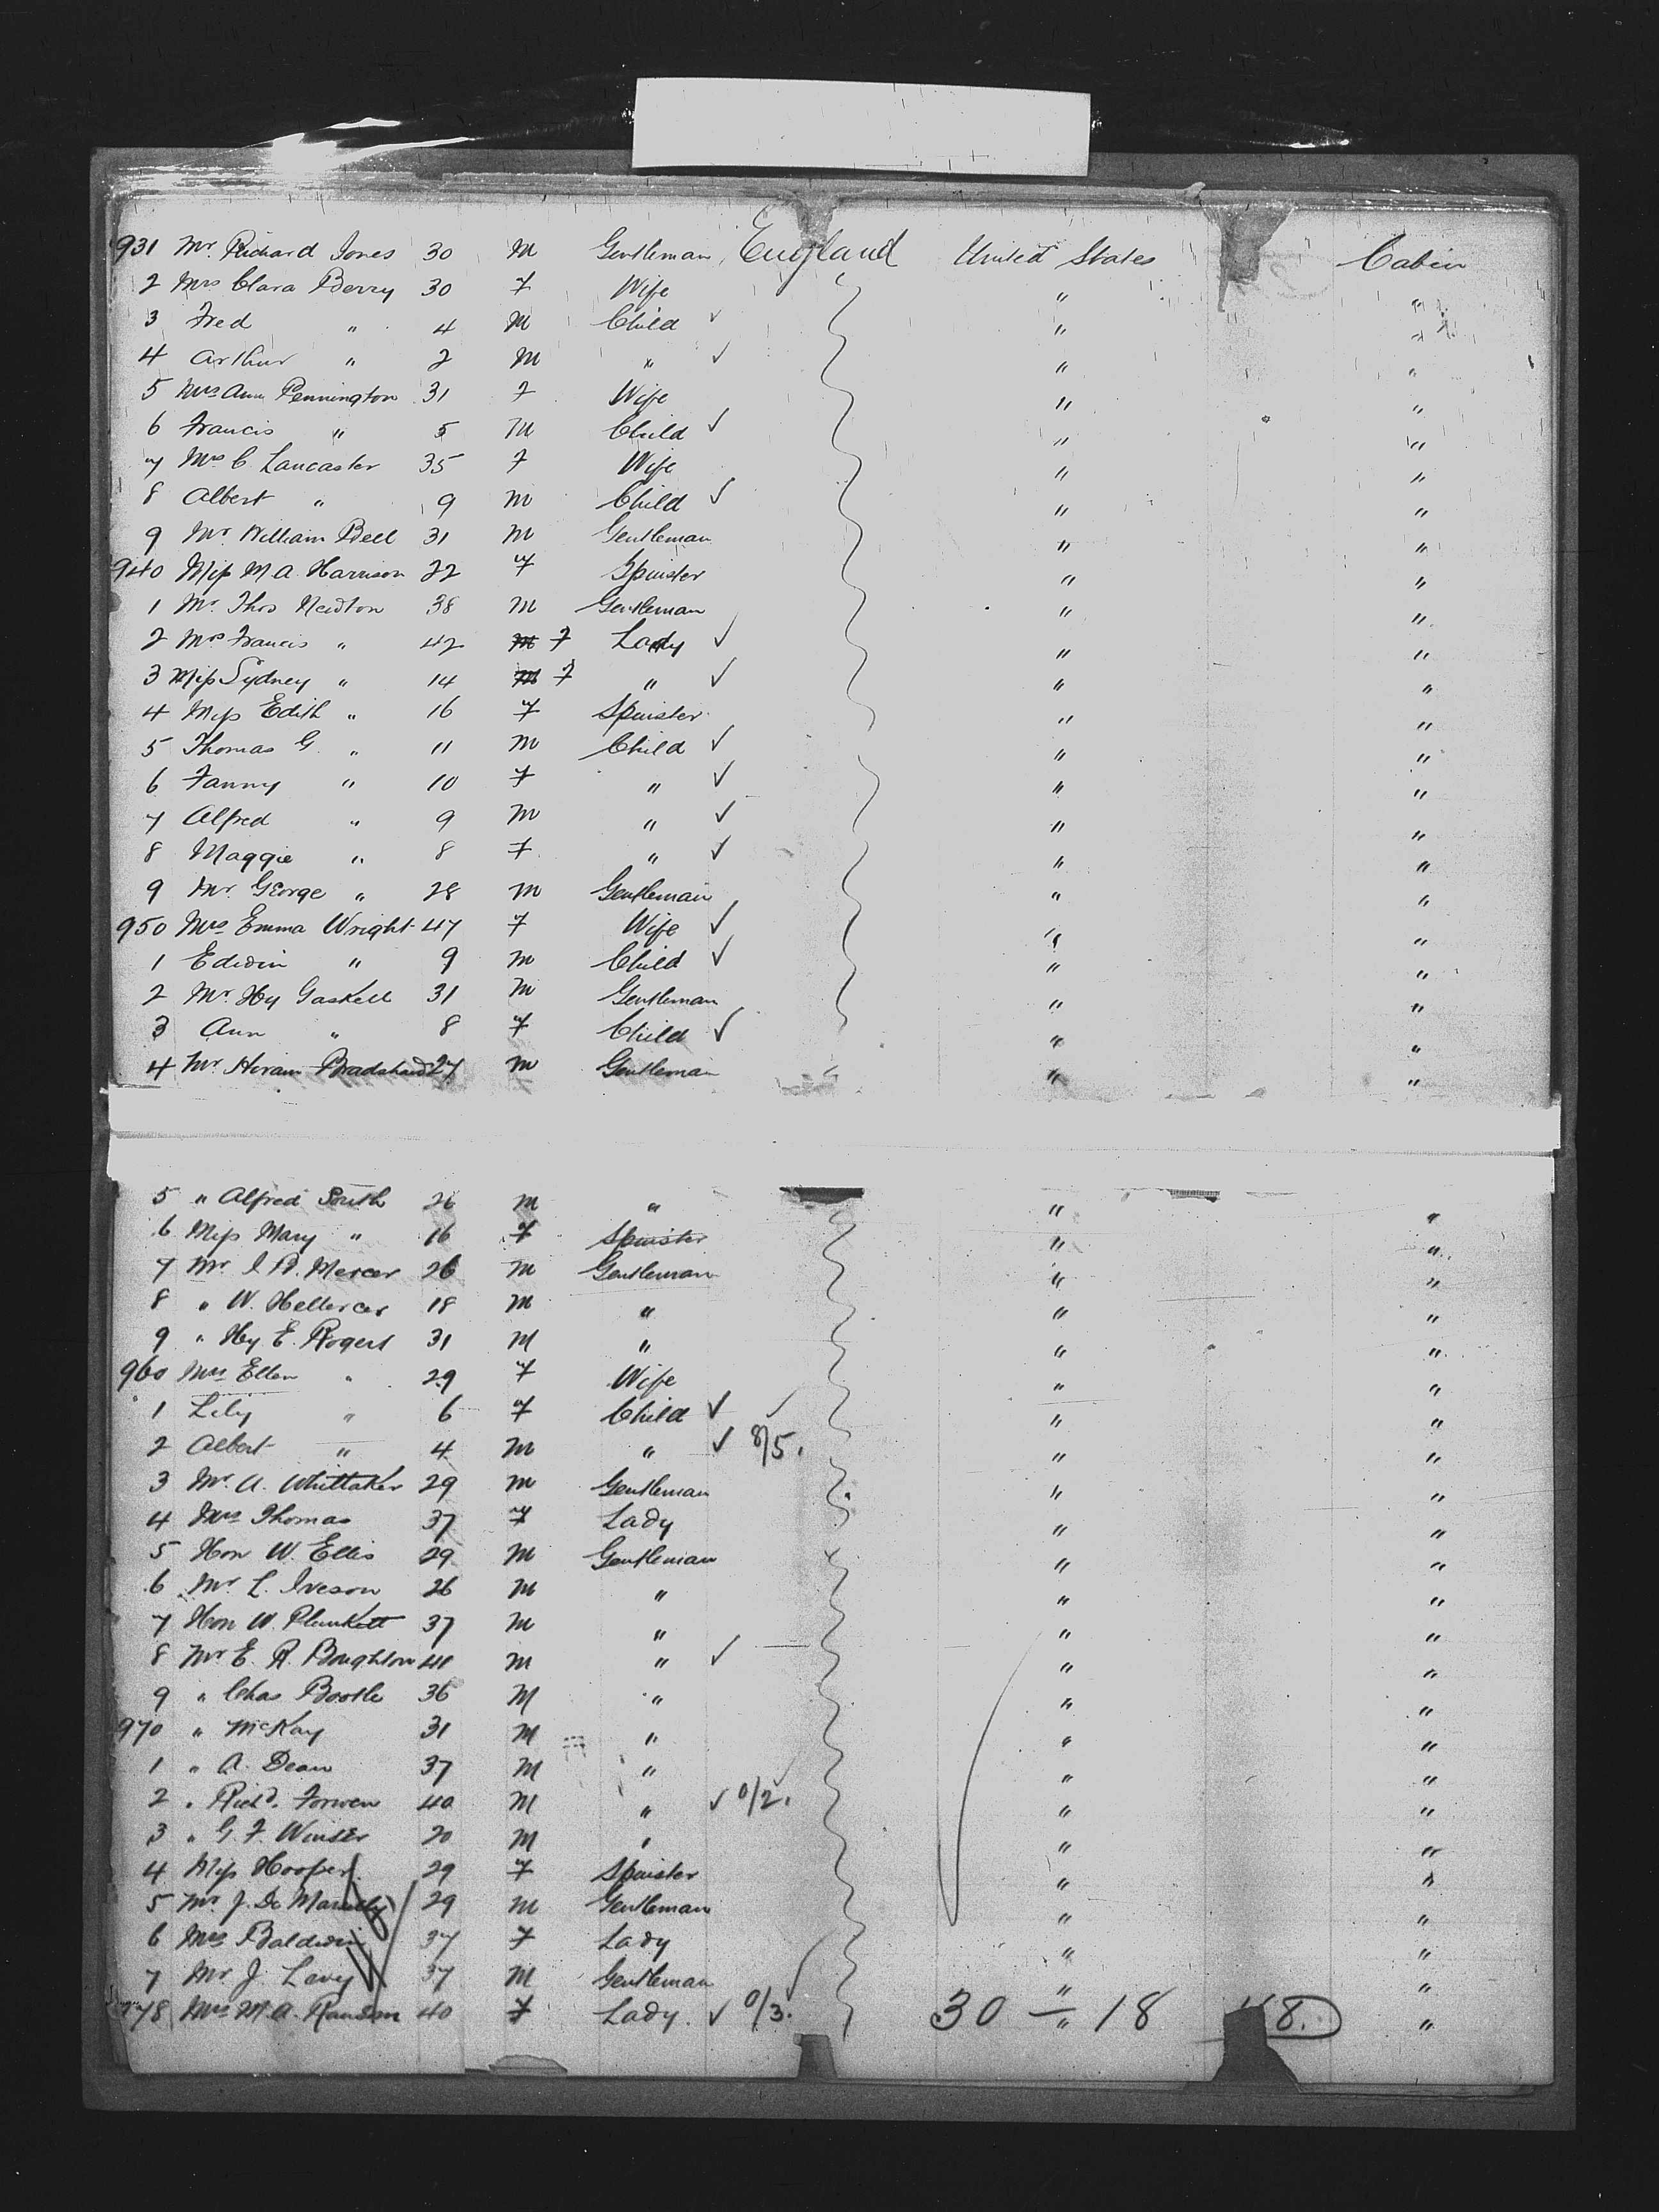 931 Mr. Richard Jones 30 M Gentleman England United States Cabin
2 Mrs Clara Berry 30 F Wife " "
3 Fred " 4 M Child ✓ " "
4 Arthur " 2 M " ✓ " "
5 Mrs Ann Pennington 31 F Wife " "
6 Francis " 5 M Child ✓ " "
7 Mrs C. Lancaster 35 F Wife " "
8 Albert " 9 M Child ✓ " "
9 Mr. William Bell 31 M Gentleman " "
940 Miss M. A. Harrison 22 F Spinster " "
1 Mr. Thos Newton 38 M Gentleman " "
2 Mrs Francis " 42 M F Lady ✓ " "
3 Miss Sydney " 14 M F " ✓ " "
4 Miss Edith " 16 F Spinster " "
5 Thomas G. " 11 M Child ✓ " "
6 Fanny " 10 F " ✓ " "
7 Alfred " 9 M " ✓ " "
8 Maggie " 8 F " ✓ " "
9 Mr. George " 28 M Gentleman " "
950 Mrs Emma Wright 47 F Wife ✓ " "
1 Edwin " 9 M Child ✓ " "
2 Mr. Hy Gaskell 31 M Gentleman " "
3 Ann " 8 F Child ✓ " "
4 Mr. Hiram Bradshaw 27 M Gentleman " "
5 " Alfred South 26 M " " "
6 Miss Mary " 16 F Spinster " "
7 Mr. Mercer 26 M Gentleman " "
8 " W. 18 M " " "
9 " Hy E. Rogers 31 M " " "
960 Mrs Ellen " 29 F Wife " "
1 Lily " 6 F Child ✓ " "
2 Albert " 4 M " ✓ 8/5. " "
3 Mr. A. Whittaker 29 M Gentleman " "
4 Mrs Thomas 37 F Lady " "
5 Hon W. Ellis 29 M Gentleman " "
6 Mr. L. Iveson 26 M " " "
7 Hon W. Plunkett 37 M " " "
8 Mr E. R. Boughton 41 M " ✓ " "
9 " Chas Bootle 36 M " " "
970 " McKay 31 M " " "
1 " A. Dean 37 M " " "
2 " Richd. 40 M " ✓ 0/2. " "
3 " G. F. Winser 20 M " " "
4 Miss Hooper 29 F Spinster " "
5 Mr. J. De 29 M Gentleman " "
6 Mrs Baldwin 37 F Lady " "
7 Mr J. Levy 37 M Gentleman " "
978 Mrs M. A. Ransom 40 F Lady ✓ 0/3. 30 — 18 "